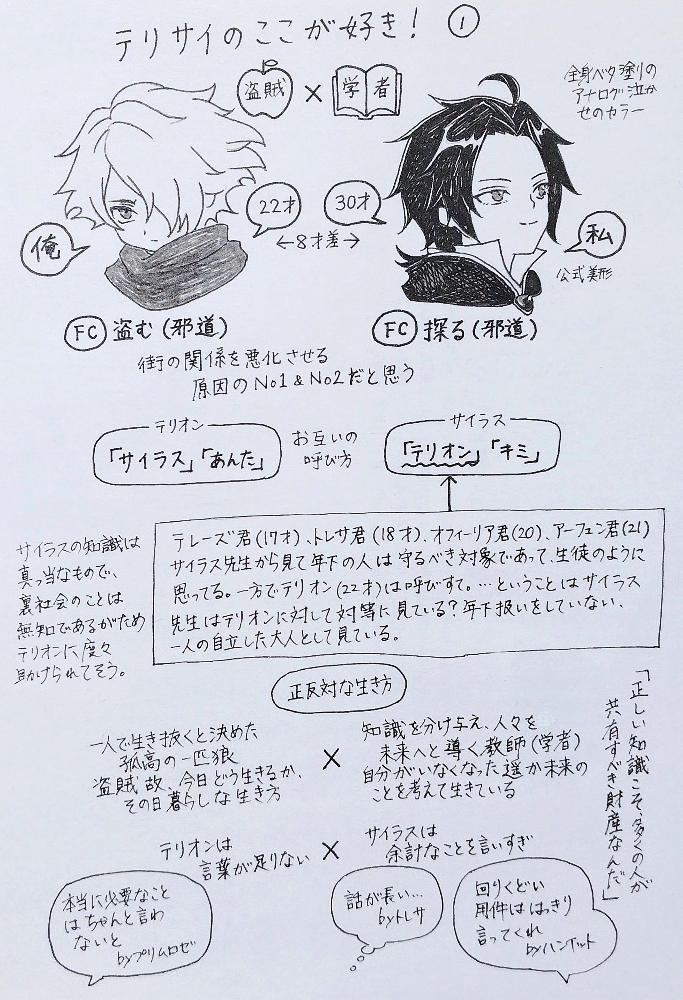 テリサイのここが好き! ①
盗賊 × 学者
全身ベタ塗りの
アナログ泣か
せのカラー
22才
30才
←8才差→
俺
私
公式美形
FC 盗む(邪道)
FC 探る(邪道)
街の関係を悪化させる
原因のNo1&No2だと思う
テリオン
「サイラス」「あんた」
お互いの
呼び方
サイラス
「テリオン」「キミ」
サイラスの知識は
真っ当なもので、
裏社会のことは
無知であるがため
テリオンに度々
助けられてそう。
テレーズ君(17才)、トレサ君(18才)、オフィーリア君(20)、アーフェン君(21)
サイラス先生から見て年下の人は守るべき対象であって、生徒のように
思ってる。一方でテリオン(22才)は呼びすて。…ということはサイラス
先生はテリオンに対して対等に見ている?年下扱いをしていない、
一人の自立した大人として見ている。
正反対な生き方
一人で生き抜くと決めた
孤高の一匹狼
盗賊故、今日どう生きるか、
その日暮らしな生き方
×
知識を分け与え、人々を
未来へと導く教師(学者)
自分がいなくなった遥か未来の
ことを考えて生きている
「正しい知識こそ、多くの人が
共有すべき財産なんだ」
テリオンは
言葉が足りない
×
サイラスは
余計なことを言いすぎ
本当に必要なこと
はちゃんと言わ
ないと
byプリムロゼ
話が長い…
byトレサ
回りくどい
用件ははっきり
言ってくれ
byハンイット